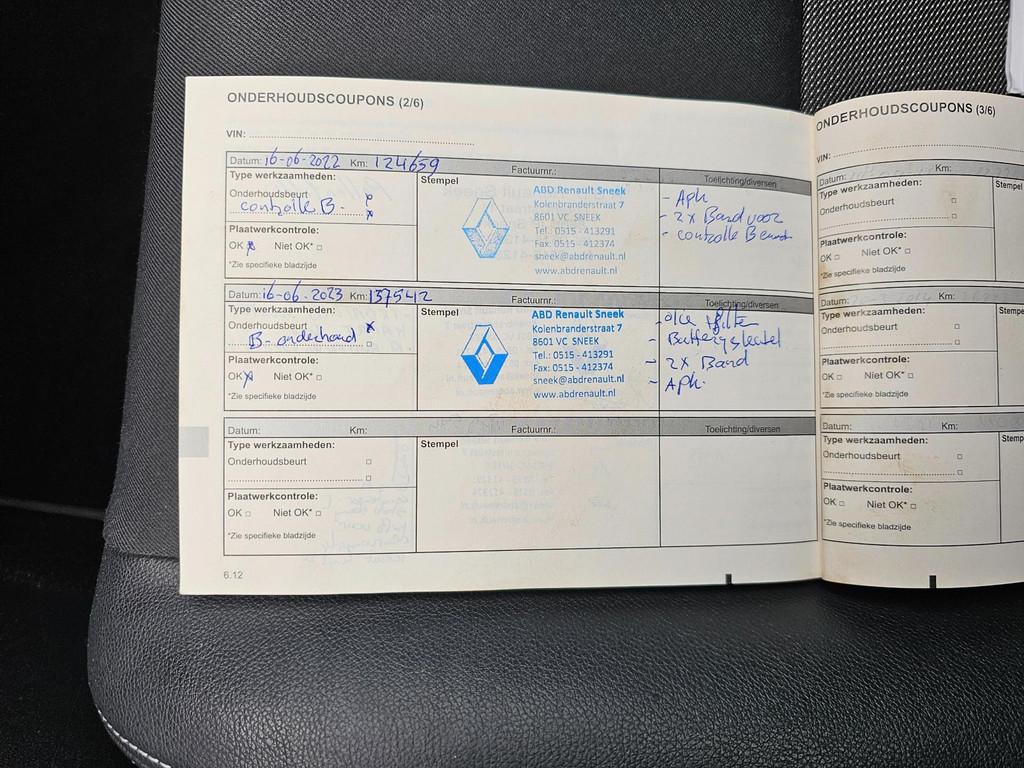 ONDERHOUDSCOUPONS (2/6)
VIN:
Datum: 16-06-2022 Km: 124659 Factuurnr.: Toelichting/diversen
Type werkzaamheden:
Onderhoudsbeurt
controlle B.
Plaatwerkcontrole:
OK x Niet OK* □
*Zie specifieke bladzijde
Stempel
ABD Renault Sneek
Kolenbranderstraat 7
8601 VC SNEEK
Tel.: 0515 - 413291
Fax: 0515 - 412374
sneek@abdrenault.nl
www.abdrenault.nl
- Apk
- 2x Band voor
- controlle Beurt
Datum: 16-06-2023 Km: 137542 Factuurnr.: Toelichting/diversen
Type werkzaamheden:
Onderhoudsbeurt x
B-onderhoud □
Plaatwerkcontrole:
OK x Niet OK* □
*Zie specifieke bladzijde
Stempel
ABD Renault Sneek
Kolenbranderstraat 7
8601 VC SNEEK
Tel.: 0515 - 413291
Fax: 0515 - 412374
sneek@abdrenault.nl
www.abdrenault.nl
- olie filter
- Batterijsleutel
- 2x Band
- Apk.
Datum: Km: Factuurnr.: Toelichting/diversen
Type werkzaamheden:
Onderhoudsbeurt □
□
Plaatwerkcontrole:
OK □ Niet OK* □
*Zie specifieke bladzijde
Stempel
6.12
ONDERHOUDSCOUPONS (3/6)
VIN:
Datum: Km:
Type werkzaamheden:
Onderhoudsbeurt □
□
Plaatwerkcontrole:
OK □ Niet OK* □
*Zie specifieke bladzijde
Stempel
Datum: Km:
Type werkzaamheden:
Onderhoudsbeurt □
□
Plaatwerkcontrole:
OK □ Niet OK* □
*Zie specifieke bladzijde
Stempe
Datum: Km:
Type werkzaamheden:
Onderhoudsbeurt □
□
Plaatwerkcontrole:
OK □ Niet OK* □
*Zie specifieke bladzijde
Stemp